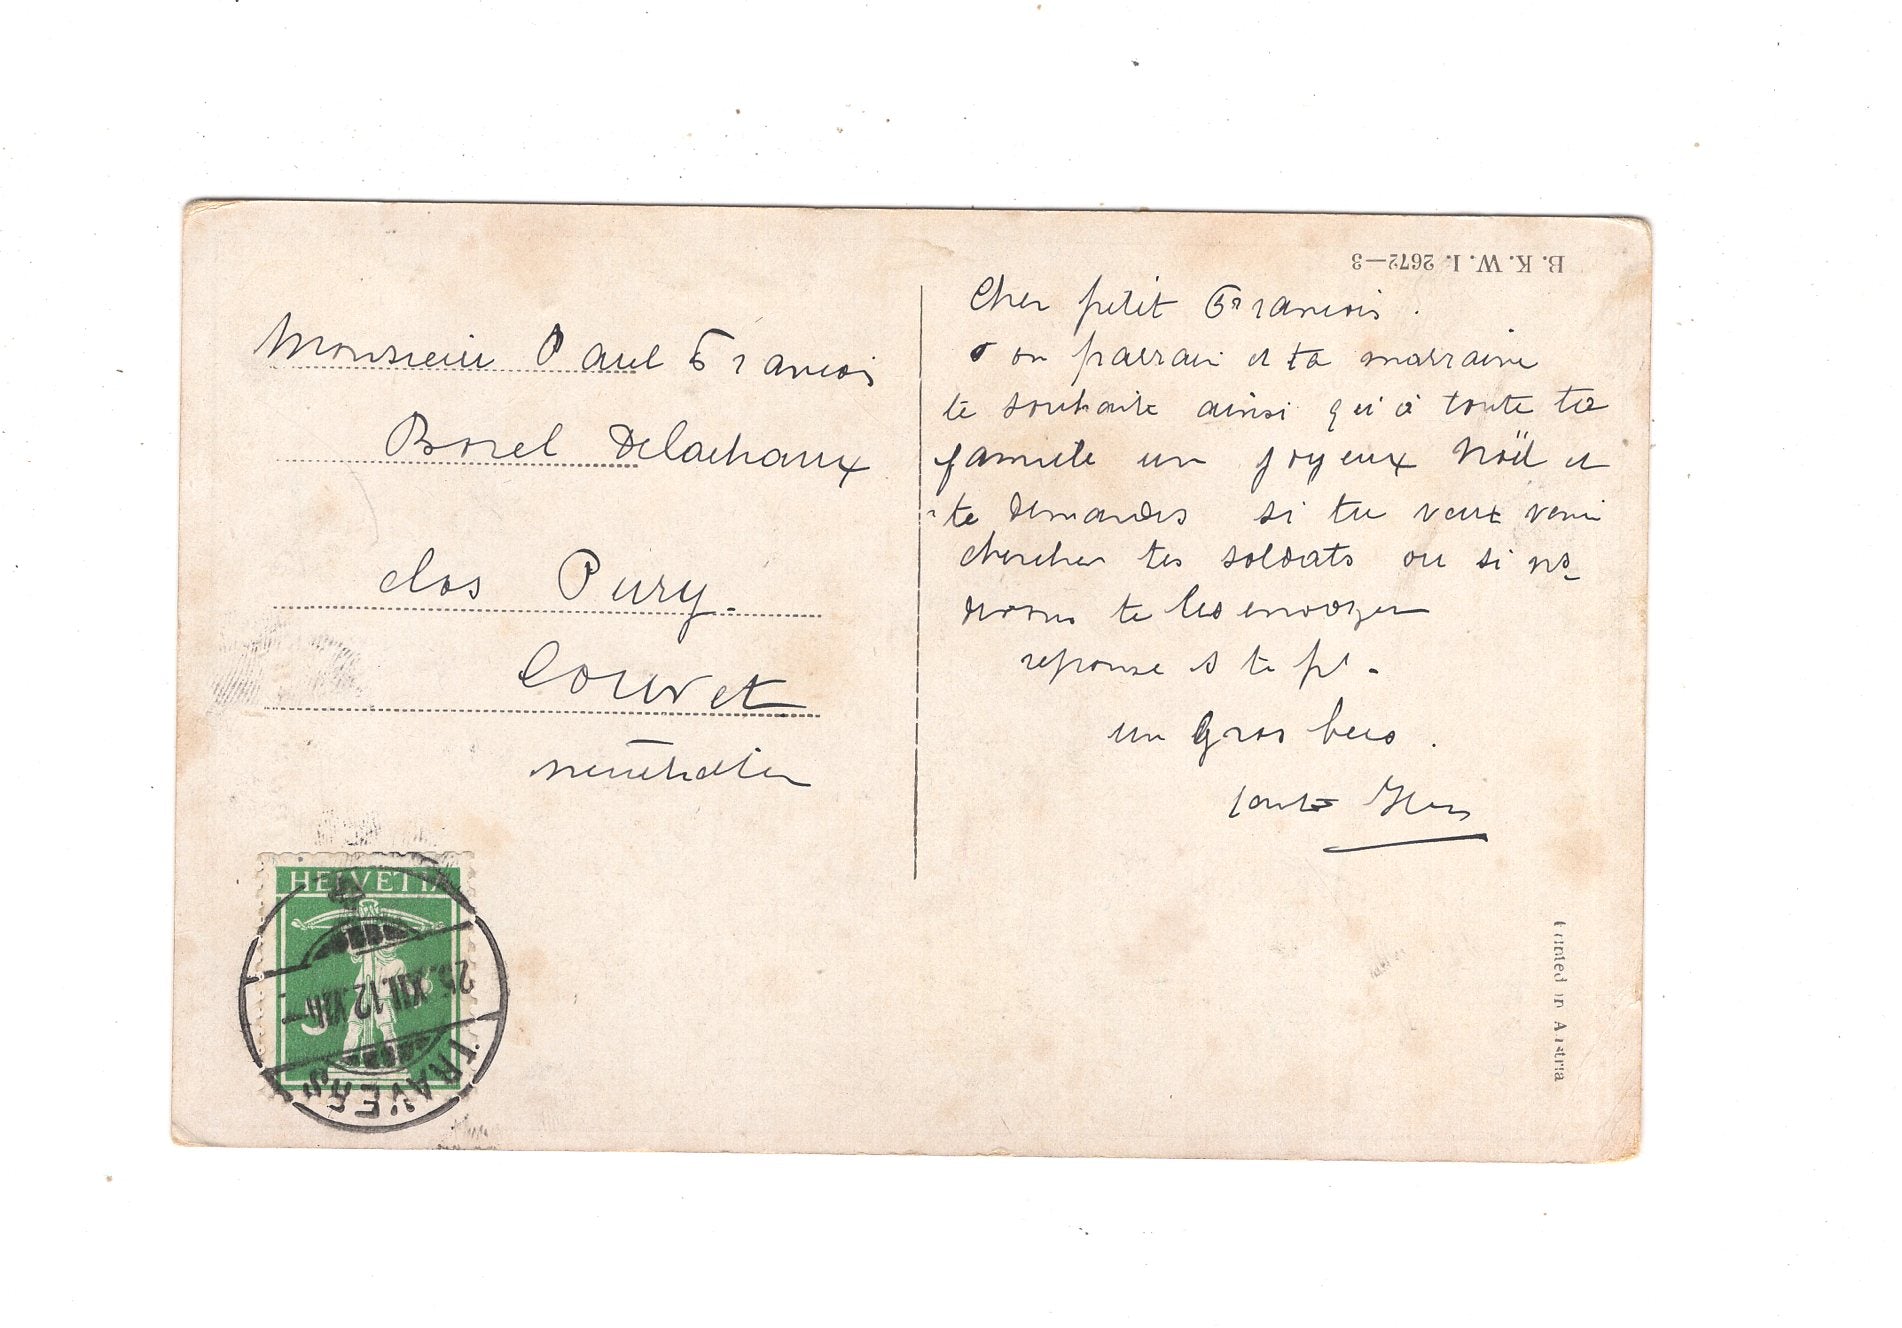 B. K. W. I. 2672—3
Monsieur Paul François
Borel Delachaux
clos Pury.
Couvet
Neuchâtel
HELVETIA
5
25.XII.12.VIII
TRAVERS
Cher petit François.
Ton parrain et ta marraine
te souhaite ainsi qu'à toute ta
famille un joyeux Nöel et
te demandes si tu veux venir
chercher tes soldats ou si ns
devons te les envoyer
reponse s te pl.
un gros becs.
tante
Printed in Austria